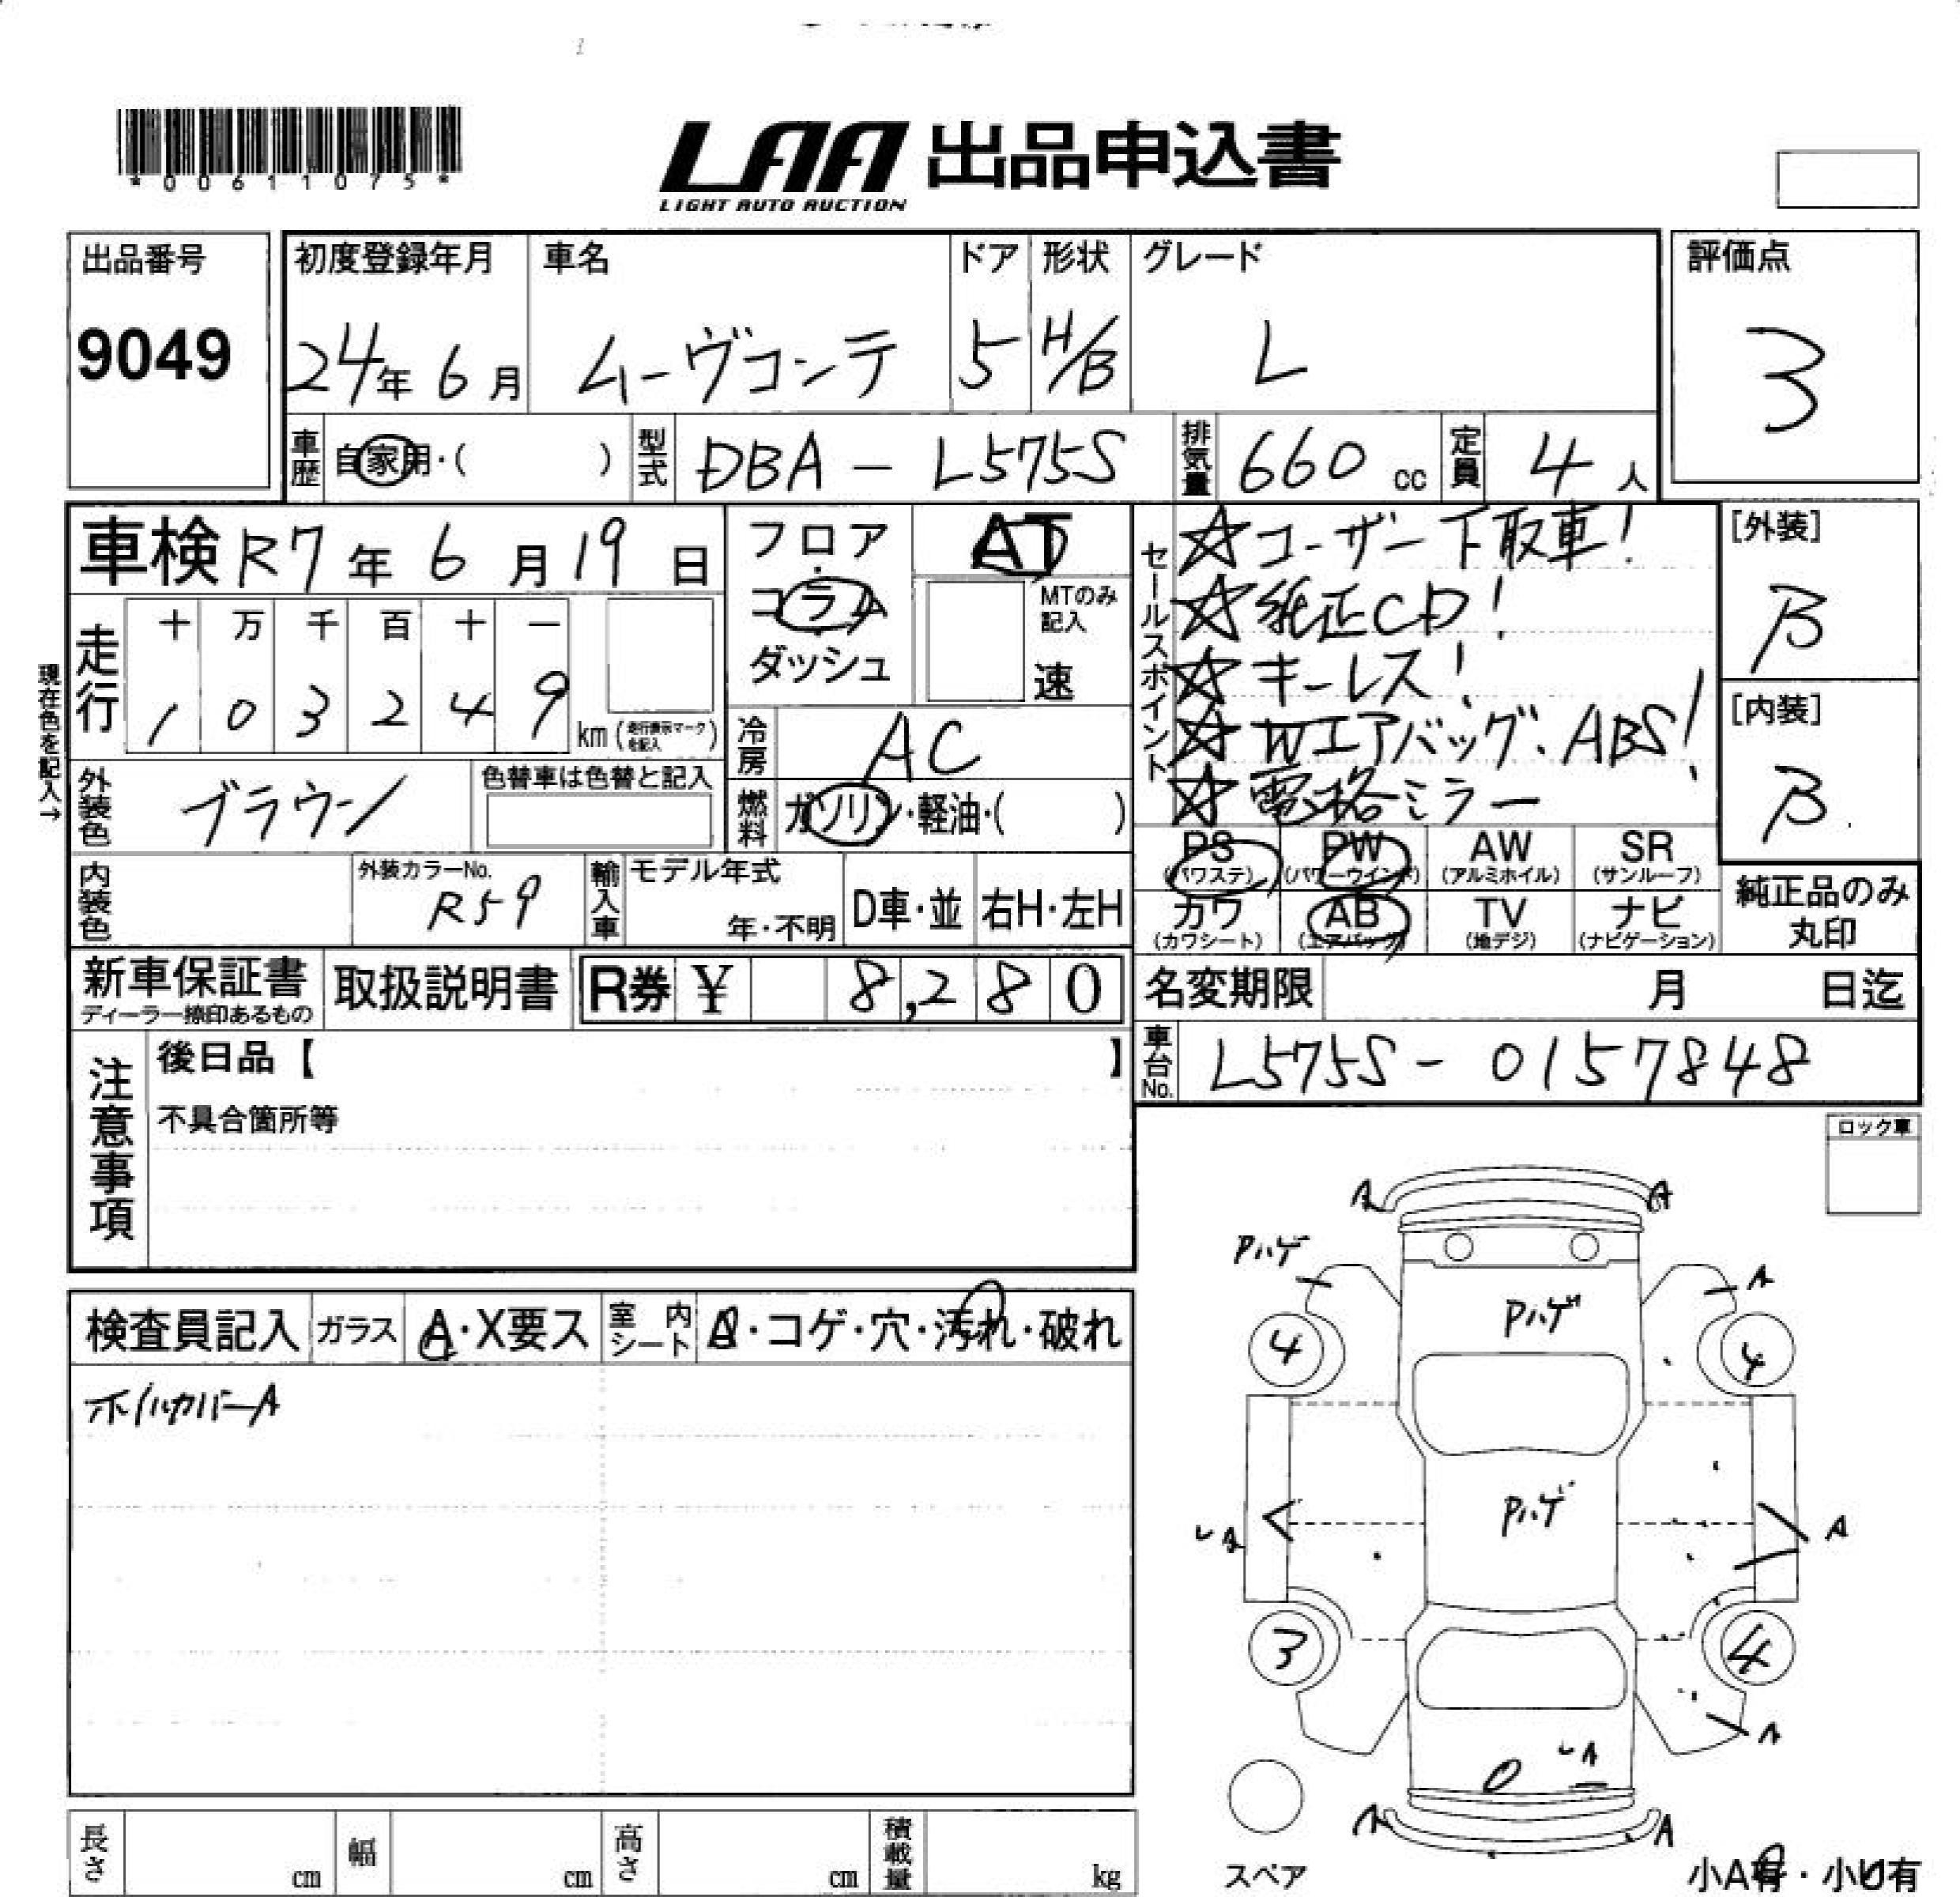 *00611075*
LAA 出品申込書
LIGHT AUTO AUCTION
出品番号
9049
初度登録年月
24年 6月
車名
ムーヴコンテ
ドア
5
形状
H/B
グレード
L
評価点
3
車歴 自家用・( )
型式 DBA - L575S
排気量 660 cc
定員 4 人
車検 R7年 6月 19日
フロア
コラム
ダッシュ
AT
MTのみ記入
速
現在色を記入→
走行
十 万 千 百 十 一
1 0 3 2 4 9
km(走行表示マークを記入)
冷房 AC
燃料 ガソリン・軽油・( )
外装色 ブラウン
色替車は色替と記入
内装色
外装カラーNo.
R59
輸入車
モデル年式
年・不明
D車・並
右H・左H
セールスポイント
☆ユーザー下取車!
☆純正CD!
☆キーレス!
☆Wエアバッグ、ABS!
☆電格ミラー
[外装]
B
[内装]
B
PS
(パワステ)
PW
(パワーウインド)
AW
(アルミホイル)
SR
(サンルーフ)
カワ
(カワシート)
AB
(エアバッグ)
TV
(地デジ)
ナビ
(ナビゲーション)
純正品のみ
丸印
新車保証書
ディーラー捺印あるもの
取扱説明書
R券 ¥ 8,280
名変期限 月 日迄
車台No. L575S - 0157848
注意事項
後日品【 】
不具合箇所等
ロック車
検査員記入
ガラス
A・X要ス
室内シート
・コゲ・穴・汚れ・破れ
ホイルカバーA
A A
Pハゲ
Pハゲ
A
4 4
Pハゲ
A
A
3 4
A
A
A A
スペア
小A有・小U有
長さ cm
幅 cm
高さ cm
積載量 kg